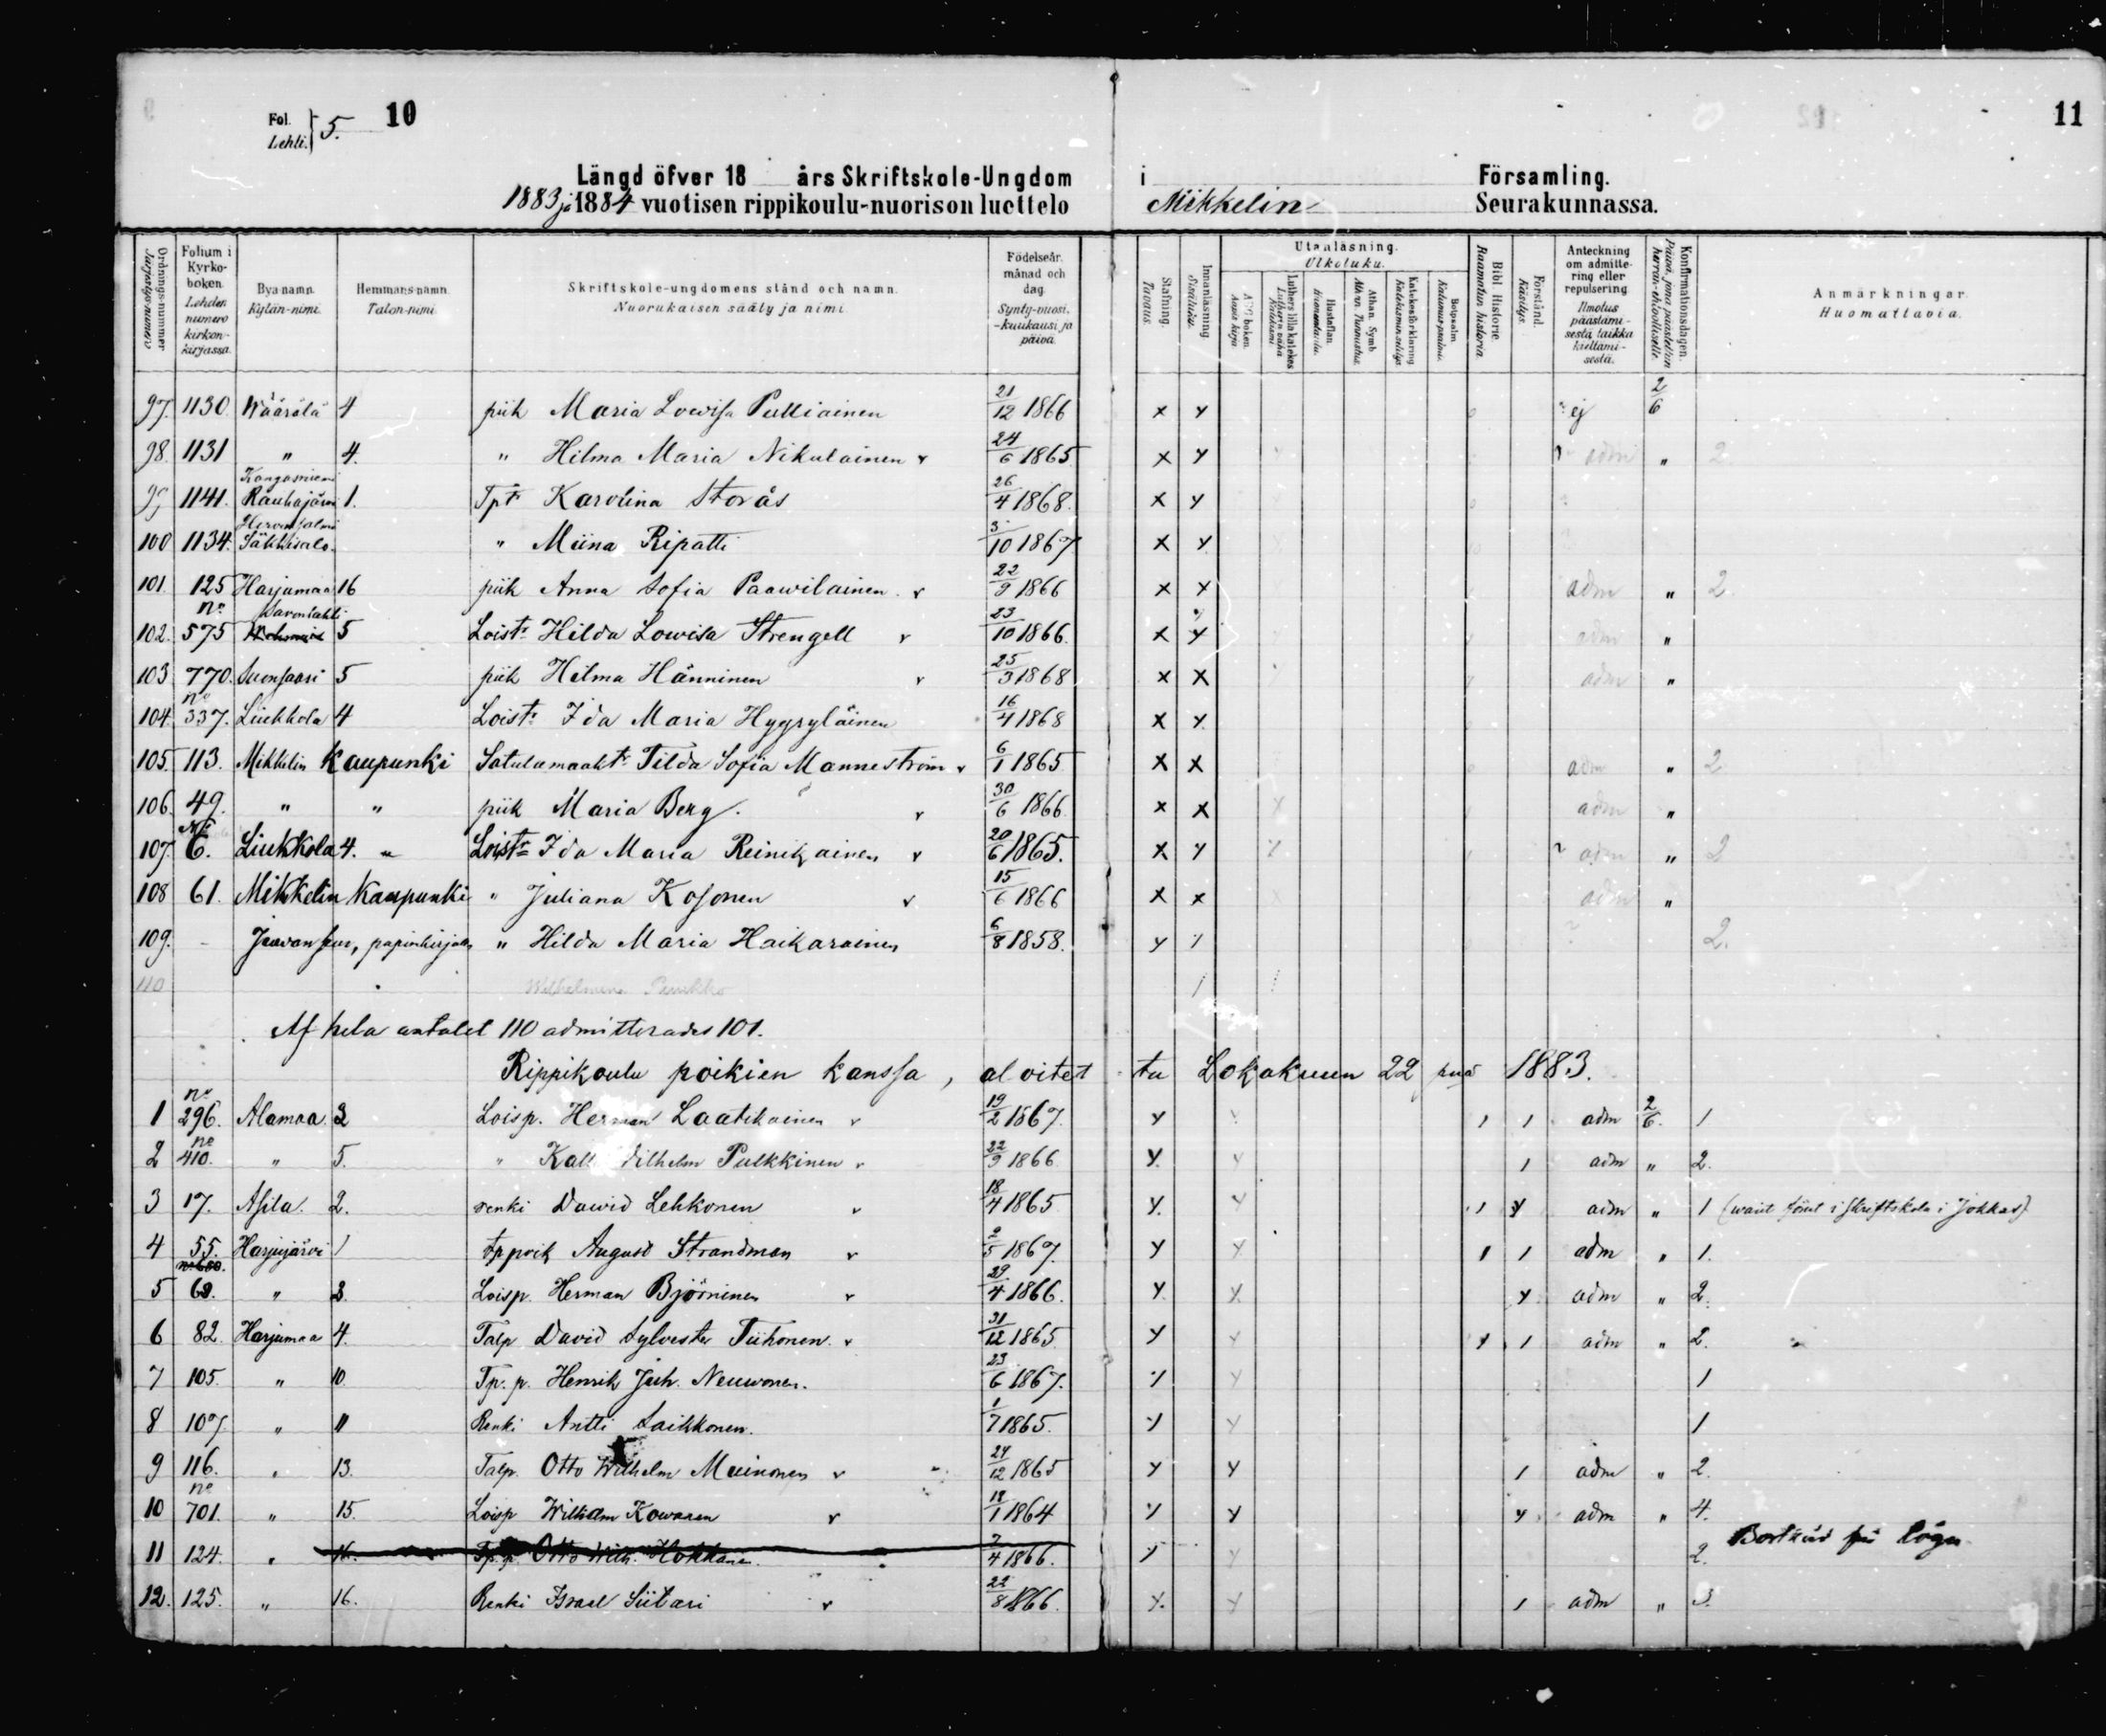 Fol. Lehti. } 5. 10
11
Längd öfver 18 års Skriftskole-Ungdom i Församling.
1883 ja 1884 vuotisen rippikoulu-nuorison luettelo Mikkelin Seurakunnassa.
Ordningsnummer Järjestys-numero
Folium i Kyrko-boken. Lehden numero kirkon-kirjassa.
Bya namn. Kylän-nimi.
Hemmans-namn. Talon-nimi.
Skriftskole-ungdomens stånd och namn. Nuorukaisen sääty ja nimi.
Födelseår, månad och dag. Synty-vuosi, -kuukausi ja päivä.
Stafning. Tavaus.
Innanläsning. Sisäluku.
Utanläsning. Ulkoluku.
ABC boken. Aapis kirja
Luthers lilla katekes Lutherin vähä Katekismi
Hustaflan. Huoneentaulu.
Athan. Symb. Athan. Tunnustus.
Katekesförklaring Katekismin selitys.
Botpsalm. Katumus-psalmi.
Bibl. Historie. Raamatun historia.
Förstånd. Käsitys.
Anteckning om admitte-ring eller repulsering. Ilmotus päästämi-sestä taikka kieltämi-sestä.
Konfirmationsdagen. Päivä, jona päästettiin herran-ehtoolliselle.
Anmärkningar. Huomattavia.
97. 1130. Wäärälä 4 piik Maria Lowisa Pulliainen 21/12 1866 x y ej 2/6
98. 1131 " 4. " Hilma Maria Nikulainen v 24/6 1865 x y adm " 2
99 1141. Kangasniemi Rauhajärvi 1. Tpt Karolina Storås 26/4 1868. x y
100 1134. Hirvensalmi Säkkisalo. " Miina Ripatti 3/10 1867 x y
101. 125 Harjumaa 16 piik Anna Sofia Paawilainen v 22/9 1866 x y adm " 2.
102. no 575 Savonlahti 5 Loistr Hilda Lowisa Strengell v 23/10 1866. x y adm "
103 770. Suonsaari 5 piik Hilma Hänninen v 25/3 1868 x x adm "
104. no 337. Liukkola 4 Loistr Ida Maria Hygryläinen 16/4 1868 x y
105. 113. Mikkelin Kaupunki Satulamaakt. Tilda Sofia Manneström v 6/1 1865 x x adm " 2
106. 49. " " piik Maria Berg. v 30/6 1866 x x x adm "
107. No 6. Liukkola 4. " Loistr Ida Maria Reinikainen v 20/6 1865. x y adm " 2
108 61. Mikkelin Kaupunki " Juliana Kosonen v 15/6 1866 x x x adm "
109. - Jäävänsuu, papinkirjalla " Hilda Maria Haikarainen 6/8 1858. y 2.
110 Wilhelmina
Af hela antalet 110 admitterades 101.
Rippikoulu poikien kanssa, aloitettu Lokakuun 22 pnä 1883.
1 no 296. Alamaa 3 Loisp. Herman Laatikainen v 19/2 1867. y 1 1 adm 2/6. 1
2 no 410. " 5. " Kalle Wilhelm Pulkkinen v 22/9 1866 y. y 1 adm " 2.
3 17. Asila. 2. renki Dawid Lehkonen v 18/4 1865 y. y 1 y adm " 1 (warit förut i Skriftskola i Jokkas)
4 55. Harjujärvi 1 tppoik August Strandman v 2/5 1867. y y 1 1 adm " 1.
5 62. " 3. Loisp. Herman Björninen v 29/4 1866. y y y adm " 2.
6 82. Harjumaa 4. Talp David Sylvester Tiihonen v 31/12 1865 y y y 1 adm " 2.
7 105. " 10. Tp. p. Henrik Joh. Neuwonen. 23/6 1867. y y 1
8 107. " 11 Renki Antti Laikkonen. 1/7 1865. y y 1
9 116. " 13. Talp. Otto Wilhelm Muinonen v 24/12 1865 y y 1 adm " 2.
10 no 701. " 15. Loisp Wilhelm Kowanen v 18/1 1864 y y y adm " 4.
11 124. " 16. Tp. p. Otto Wilh. Hokkanen. 7/4 1866. y y 2. Bortkörd för lögn.
12. 125. " 16. Renki Israel Siitari v 22/8 1866. y. y 1 adm " 3.